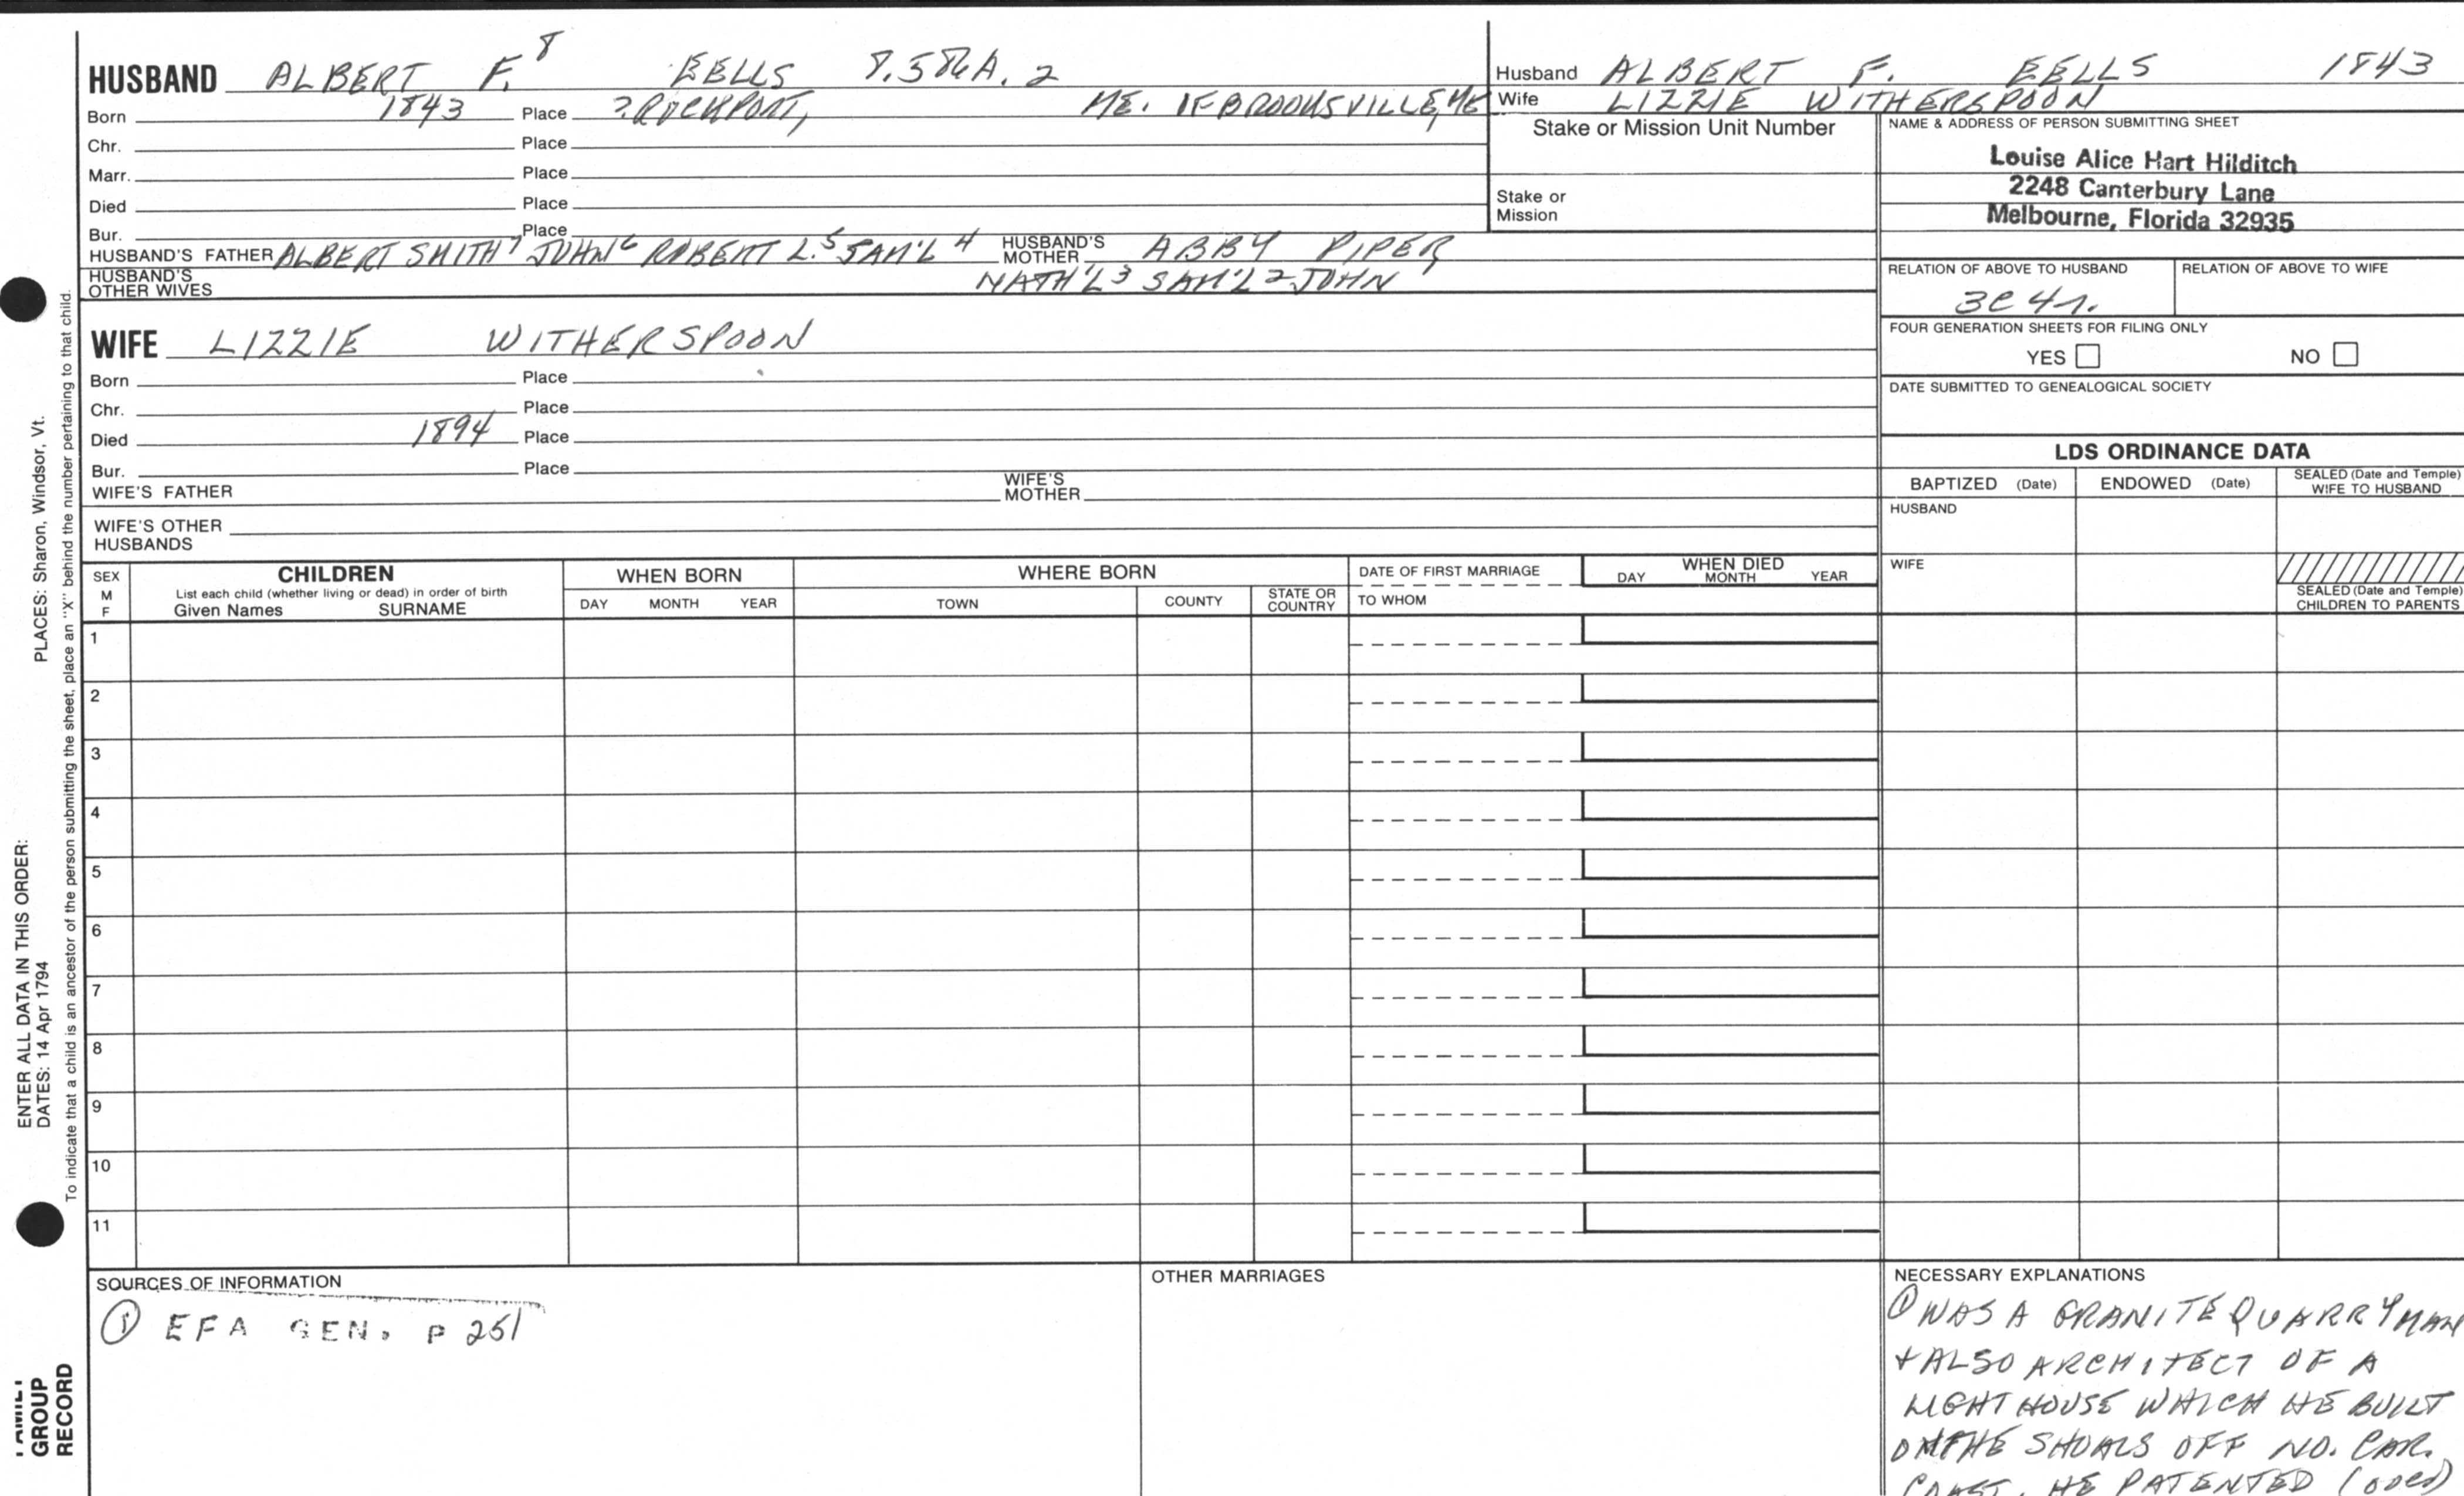 HUSBAND ALBERT F.8 EELLS 8.586A.2
Born 1843 Place ?ROCKPORT, ME. OF BROOKSVILLE, ME
Chr. Place
Marr. Place
Died Place
Bur. Place
HUSBAND'S FATHER ALBERT SMITH7 JOHN6 ROBERT L.5 SAM'L4 HUSBAND'S MOTHER ABBY PIPER
HUSBAND'S OTHER WIVES NATH'L3 SAM'L2 JOHN
WIFE LIZZIE WITHERSPOON
Born Place
Chr. Place
Died 1894 Place
Bur. Place
WIFE'S FATHER WIFE'S MOTHER
WIFE'S OTHER HUSBANDS
Husband ALBERT F. EELLS 1843
Wife LIZZIE WITHERSPOON
Stake or Mission Unit Number
Stake or Mission
NAME & ADDRESS OF PERSON SUBMITTING SHEET
Louise Alice Hart Hilditch
2248 Canterbury Lane
Melbourne, Florida 32935
RELATION OF ABOVE TO HUSBAND RELATION OF ABOVE TO WIFE
3C 4r.
FOUR GENERATION SHEETS FOR FILING ONLY
YES NO
DATE SUBMITTED TO GENEALOGICAL SOCIETY
LDS ORDINANCE DATA
BAPTIZED (Date) ENDOWED (Date) SEALED (Date and Temple) WIFE TO HUSBAND
HUSBAND
WIFE
SEALED (Date and Temple) CHILDREN TO PARENTS
SEX M F
CHILDREN
List each child (whether living or dead) in order of birth
Given Names SURNAME
WHEN BORN
DAY MONTH YEAR
WHERE BORN
TOWN COUNTY STATE OR COUNTRY
DATE OF FIRST MARRIAGE
TO WHOM
WHEN DIED
DAY MONTH YEAR
1
2
3
4
5
6
7
8
9
10
11
SOURCES OF INFORMATION
① EFA GEN. P 251
OTHER MARRIAGES
NECESSARY EXPLANATIONS
① WAS A GRANITE QUARRYMAN
+ ALSO ARCHITECT OF A
LIGHTHOUSE WHICH HE BUILT
ON THE SHOALS OFF NO. CAR.
COAST. HE PATENTED (over)
PLACES: Sharon, Windsor, Vt.
ENTER ALL DATA IN THIS ORDER:
DATES: 14 Apr 1794
To indicate that a child is an ancestor of the person submitting the sheet, place an "X" behind the number pertaining to that child.
FAMILY
GROUP
RECORD